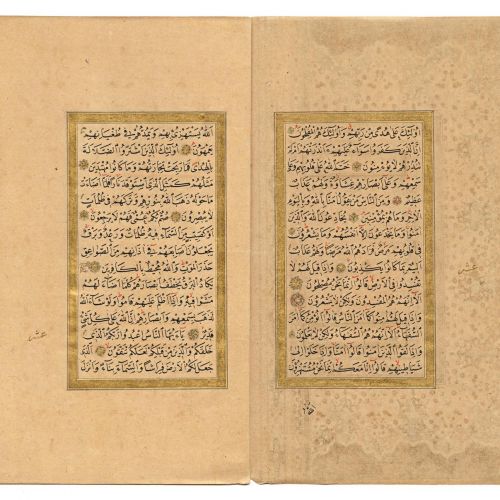 اُولٰٓئِكَ عَلٰى هُدًى مِنْ رَبِّهِمْ وَاُولٰٓئِكَ هُمُ الْمُفْلِحُونَ
اِنَّ الَّذِينَ كَفَرُوا سَوَاءٌ عَلَيْهِمْ ءَاَنْذَرْتَهُمْ اَمْ لَمْ
تُنْذِرْهُمْ لَا يُؤْمِنُونَ خَتَمَ اللهُ عَلٰى قُلُوبِهِمْ وَعَلٰى
سَمْعِهِمْ وَعَلٰى اَبْصَارِهِمْ غِشَاوَةٌ وَلَهُمْ عَذَابٌ
عَظِيمٌ وَمِنَ النَّاسِ مَنْ يَقُولُ اٰمَنَّا بِاللهِ وَبِالْيَوْمِ
الْاٰخِرِ وَمَا هُمْ بِمُؤْمِنِينَ يُخَادِعُونَ اللهَ وَالَّذِينَ
اٰمَنُوا وَمَا يَخْدَعُونَ اِلَّا اَنْفُسَهُمْ وَمَا يَشْعُرُونَ
فِي قُلُوبِهِمْ مَرَضٌ فَزَادَهُمُ اللهُ مَرَضًا وَلَهُمْ عَذَابٌ
اَلِيمٌ بِمَا كَانُوا يَكْذِبُونَ وَاِذَا قِيلَ لَهُمْ لَا
تُفْسِدُوا فِي الْاَرْضِ قَالُوا اِنَّمَا نَحْنُ مُصْلِحُونَ
اَلَا اِنَّهُمْ هُمُ الْمُفْسِدُونَ وَلٰكِنْ لَا يَشْعُرُونَ
وَاِذَا قِيلَ لَهُمْ اٰمِنُوا كَمَا اٰمَنَ النَّاسُ قَالُوا اَنُؤْمِنُ كَمَا اٰمَنَ
السُّفَهَاءُ اَلَا اِنَّهُمْ هُمُ السُّفَهَاءُ وَلٰكِنْ لَا يَعْلَمُونَ
وَاِذَا لَقُوا الَّذِينَ اٰمَنُوا قَالُوا اٰمَنَّا وَاِذَا خَلَوْا اِلٰى
شَيَاطِينِهِمْ قَالُوا اِنَّا مَعَكُمْ اِنَّمَا نَحْنُ مُسْتَهْزِؤُنَ
اَللهُ يَسْتَهْزِئُ بِهِمْ وَيَمُدُّهُمْ فِي طُغْيَانِهِمْ
يَعْمَهُونَ اُولٰٓئِكَ الَّذِينَ اشْتَرَوُا الضَّلَالَةَ
بِالْهُدٰى فَمَا رَبِحَتْ تِجَارَتُهُمْ وَمَا كَانُوا مُهْتَدِينَ
مَثَلُهُمْ كَمَثَلِ الَّذِي اسْتَوْقَدَ نَارًا فَلَمَّا اَضَاءَتْ
مَا حَوْلَهُ ذَهَبَ اللهُ بِنُورِهِمْ وَتَرَكَهُمْ فِي ظُلُمَاتٍ
لَا يُبْصِرُونَ صُمٌّ بُكْمٌ عُمْيٌ فَهُمْ لَا يَرْجِعُونَ
اَوْ كَصَيِّبٍ مِنَ السَّمَاءِ فِيهِ ظُلُمَاتٌ وَرَعْدٌ وَبَرْقٌ
يَجْعَلُونَ اَصَابِعَهُمْ فِي اٰذَانِهِمْ مِنَ الصَّوَاعِقِ
حَذَرَ الْمَوْتِ وَاللهُ مُحِيطٌ بِالْكَافِرِينَ
يَكَادُ الْبَرْقُ يَخْطَفُ اَبْصَارَهُمْ كُلَّمَا اَضَاءَ لَهُمْ
مَشَوْا فِيهِ وَاِذَا اَظْلَمَ عَلَيْهِمْ قَامُوا وَلَوْ شَاءَ اللهُ
لَذَهَبَ بِسَمْعِهِمْ وَاَبْصَارِهِمْ اِنَّ اللهَ عَلٰى كُلِّ شَيْءٍ
قَدِيرٌ يَا اَيُّهَا النَّاسُ اعْبُدُوا رَبَّكُمُ الَّذِي
خَلَقَكُمْ وَالَّذِينَ مِنْ قَبْلِكُمْ لَعَلَّكُمْ تَتَّقُونَ الَّذِي
جَعَلَ لَكُمُ الْاَرْضَ فِرَاشًا وَالسَّمَاءَ بِنَاءً وَاَنْزَلَ